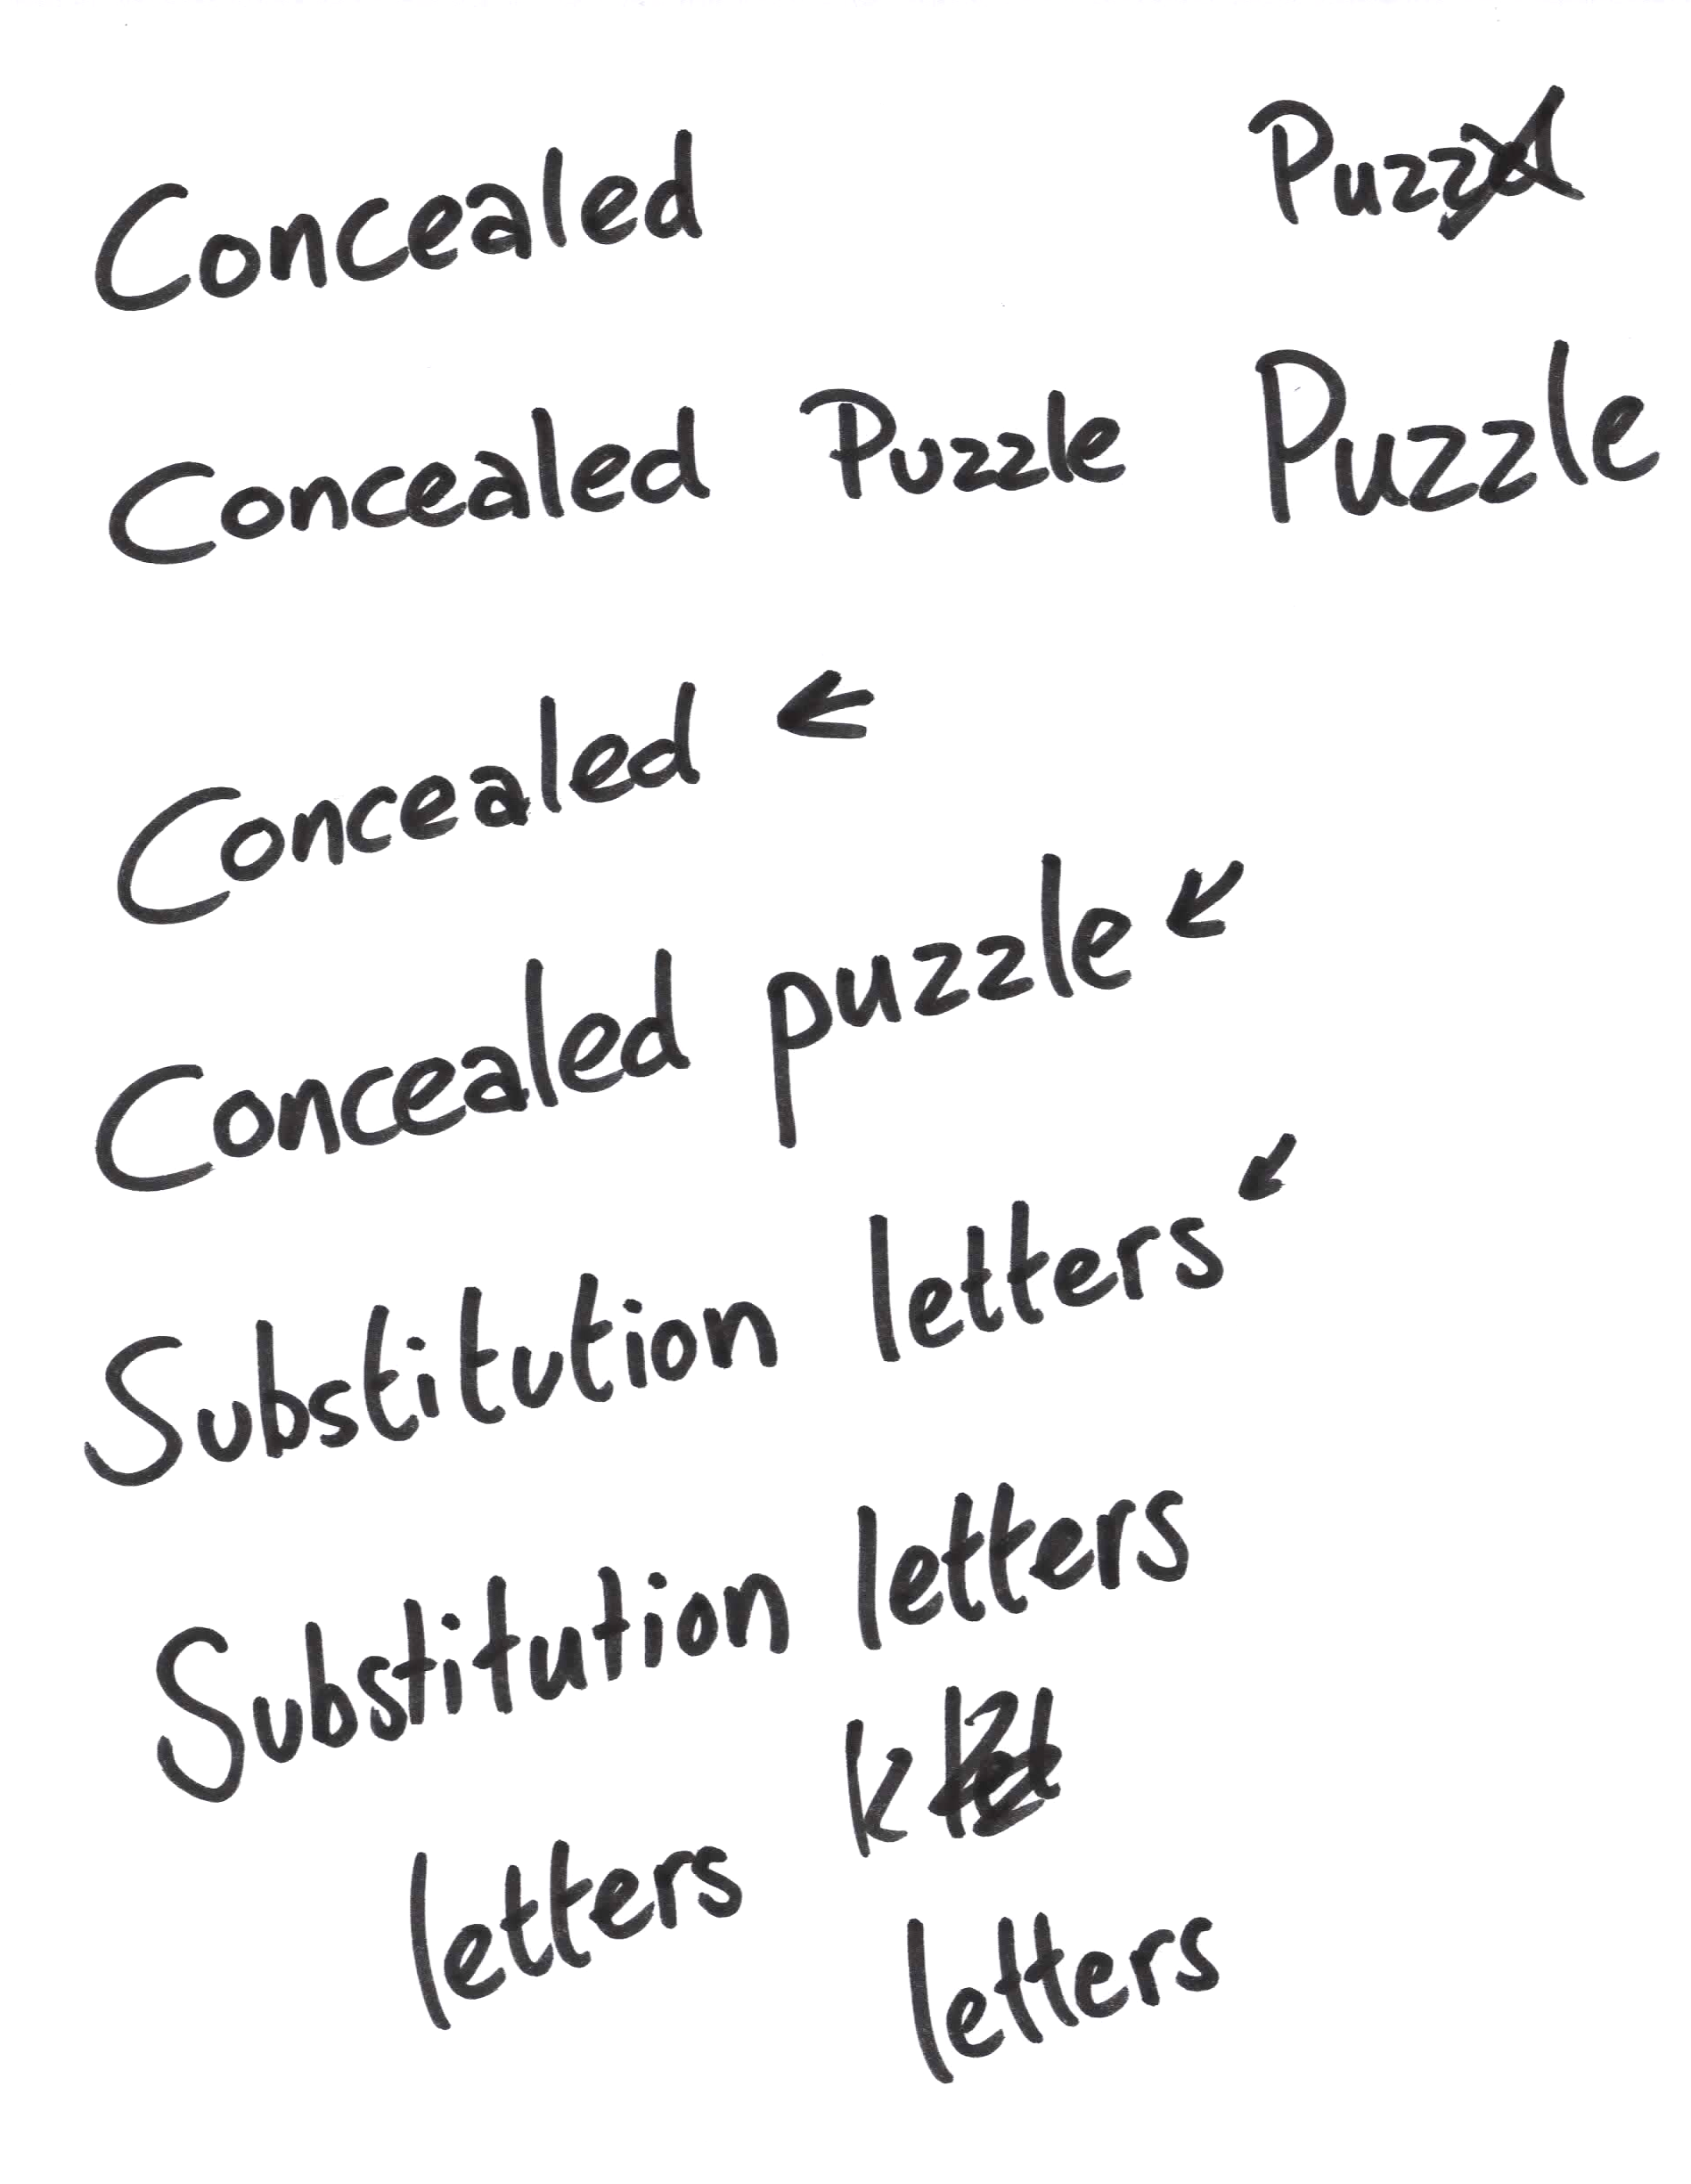 Concealed Puzz
Concealed Puzzle Puzzle
Concealed
Concealed puzzle
Substitution letters
Substitution letters
k
letters
letters